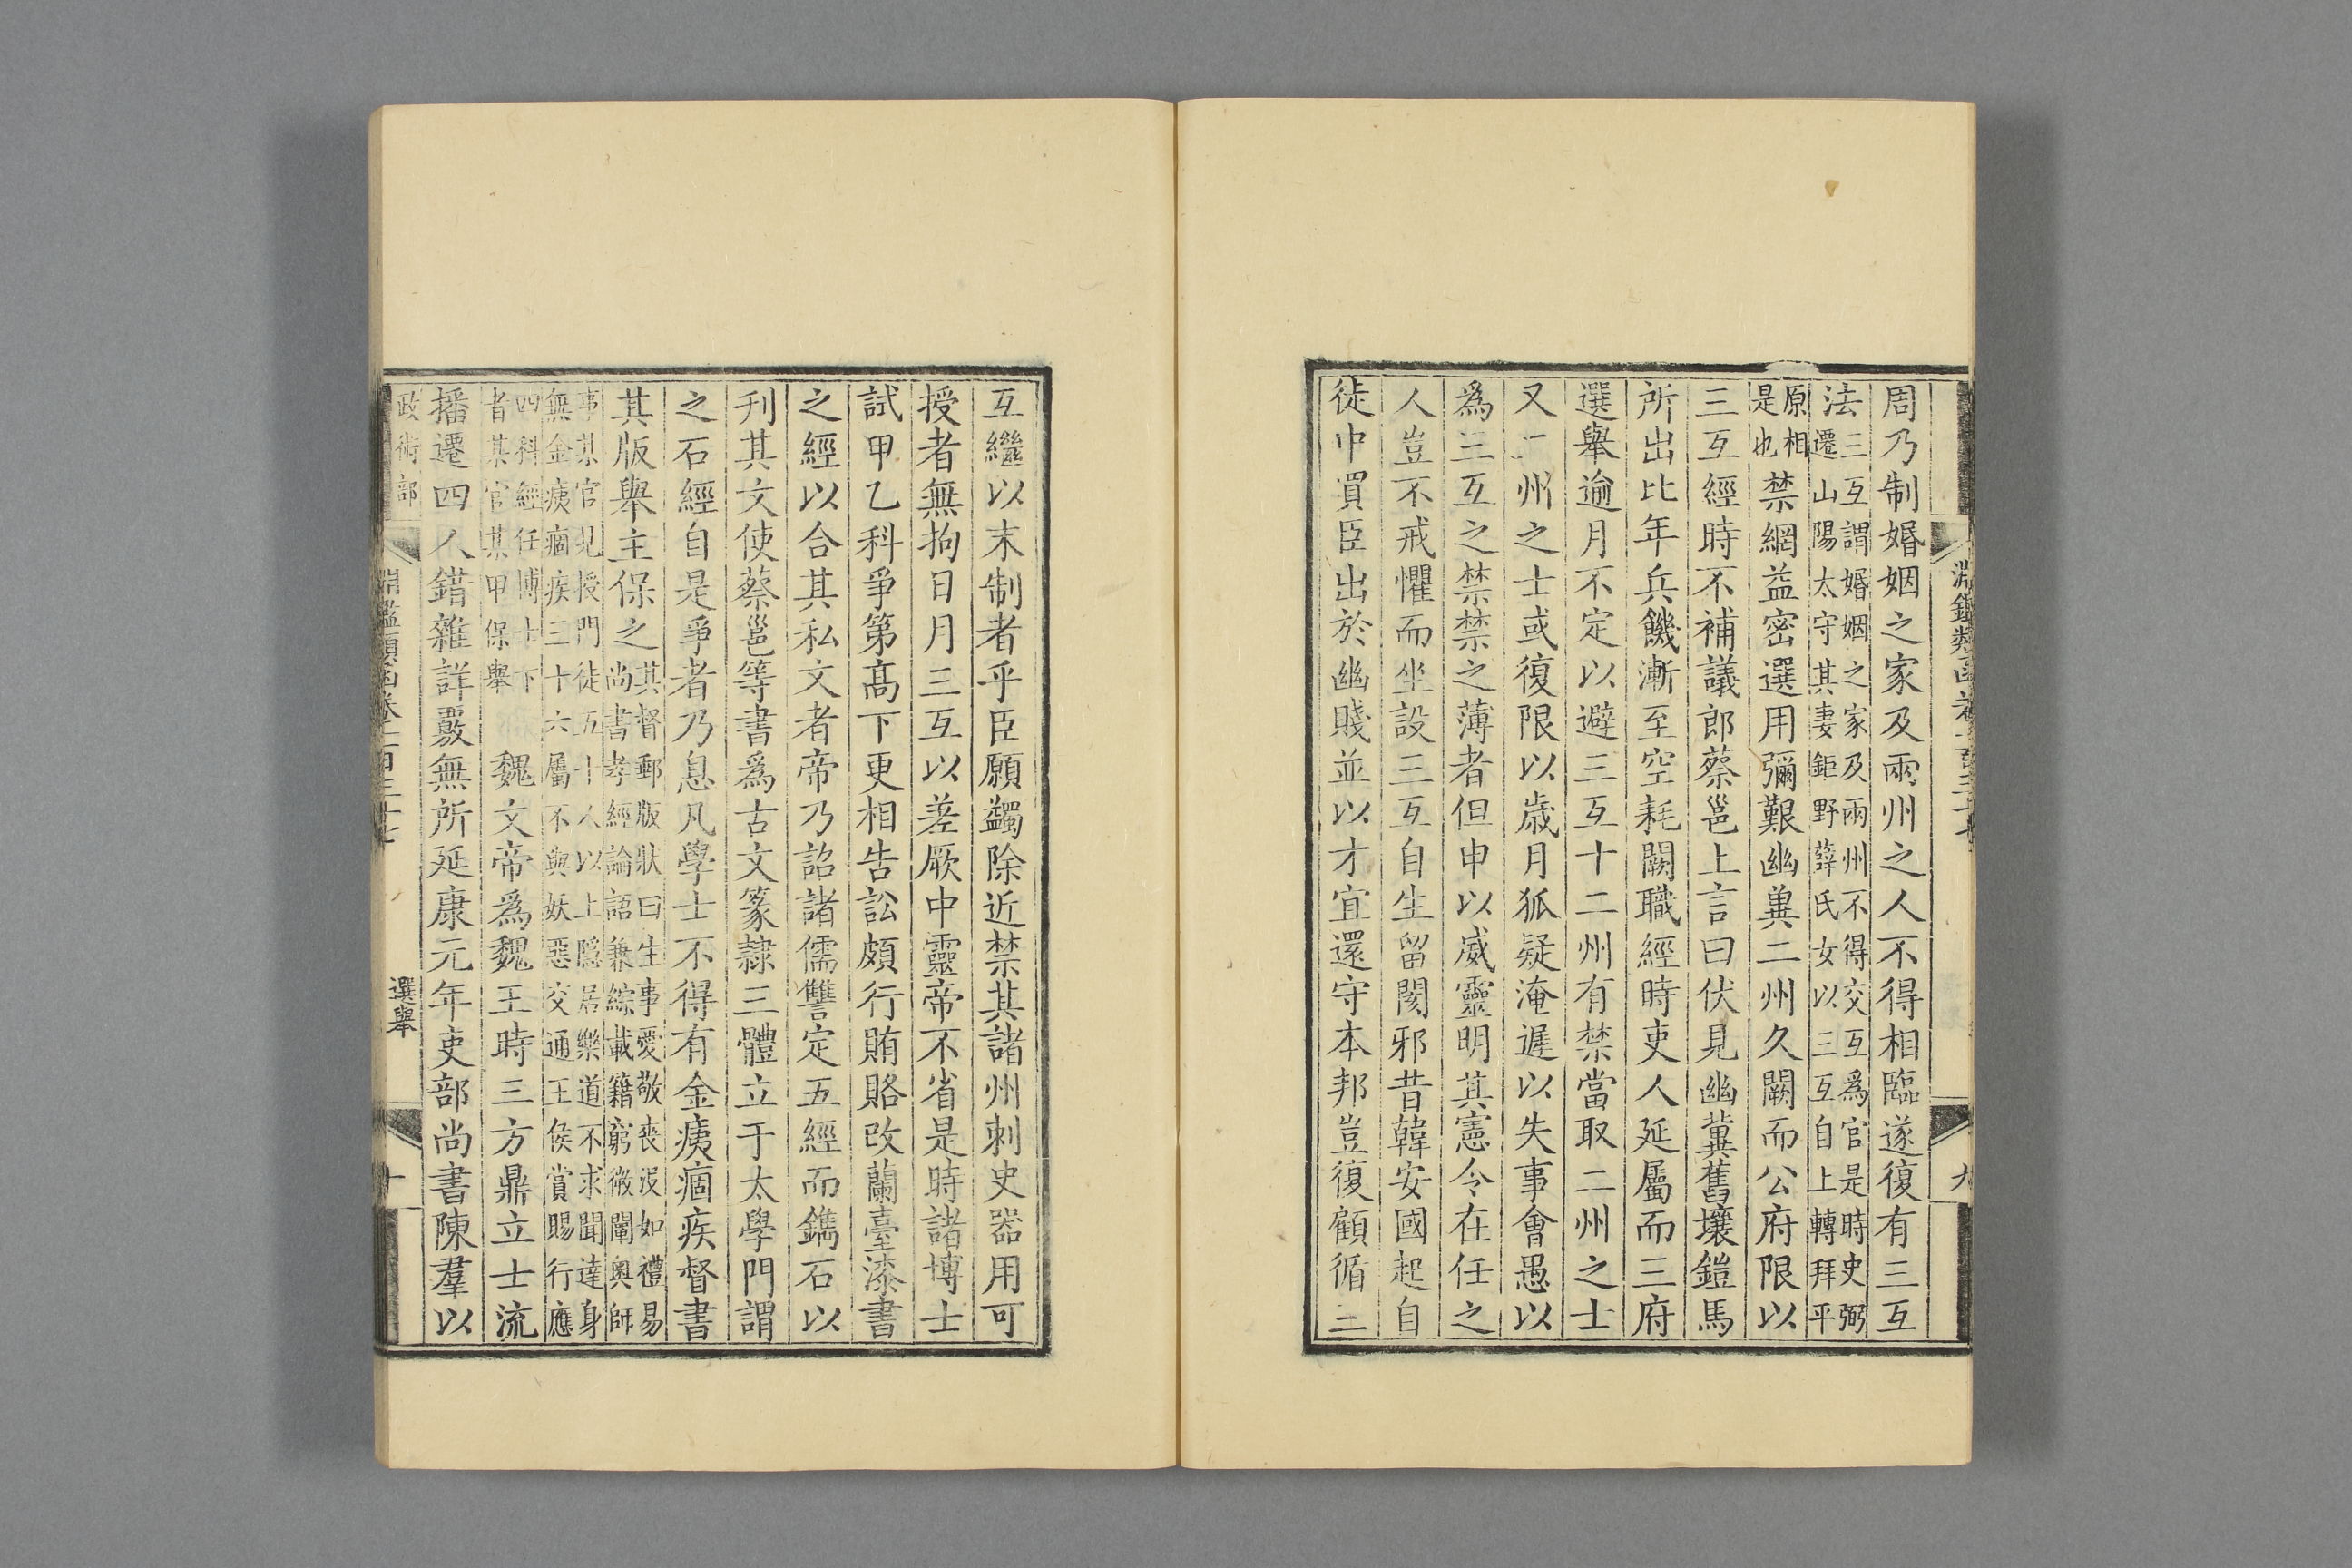 周乃制婚姻之家及兩州之人不得相臨遂復有三互
法三互謂婚姻之家及兩州不得交互為官是時史弼
遷山陽太守其妻鉅野薛氏女以三互自上轉拜平
原相
是也禁網益密選用彌艱幽兾二州久闕而公府限以
三互經時不補議郎蔡邕上言曰伏見幽冀舊壤鎧馬
所出比年兵饑漸至空耗闕職經時吏人延屬而三府
選舉逾月不定以避三互十二州有禁當取二州之士
又二州之士或復限以歲月狐疑淹遲以失事會愚以
爲三互之禁禁之薄者但申以威靈明其憲令在任之
人豈不戒懼而坐設三互自生留閡邪昔韓安國起自
徒中買臣出於幽賤並以才宜還守本邦豈復顧循三
互繼以末制者乎臣願蠲除近禁其諸州刺史器用可
授者無拘日月三互以差厥中靈帝不省是時諸博士
試甲乙科爭第高下更相告訟頗行賄賂改蘭臺漆書
之經以合其私文者帝乃詔諸儒讐定五經而鐫石以
刊其文使蔡邕等書爲古文篆隸三體立于太學門謂
之石經自是爭者乃息凡學士不得有金痍痼疾督書
其版舉主保之其督郵版狀曰生事愛敬喪沒如禮易
尚書孝經論語兼綜載籍窮微闡奧師
事某官見授門徒五十人以上隱居樂道不求聞達身
無金痍痼疾三十六屬不與妖惡交通王侯賞賜行應
四科經任博士下
者某官某甲保舉魏文帝爲魏王時三方鼎立士流
播遷四人錯雜詳覈無所延康元年吏部尚書陳羣以
政術部
淵鑑類函卷一百三十七
選舉
十